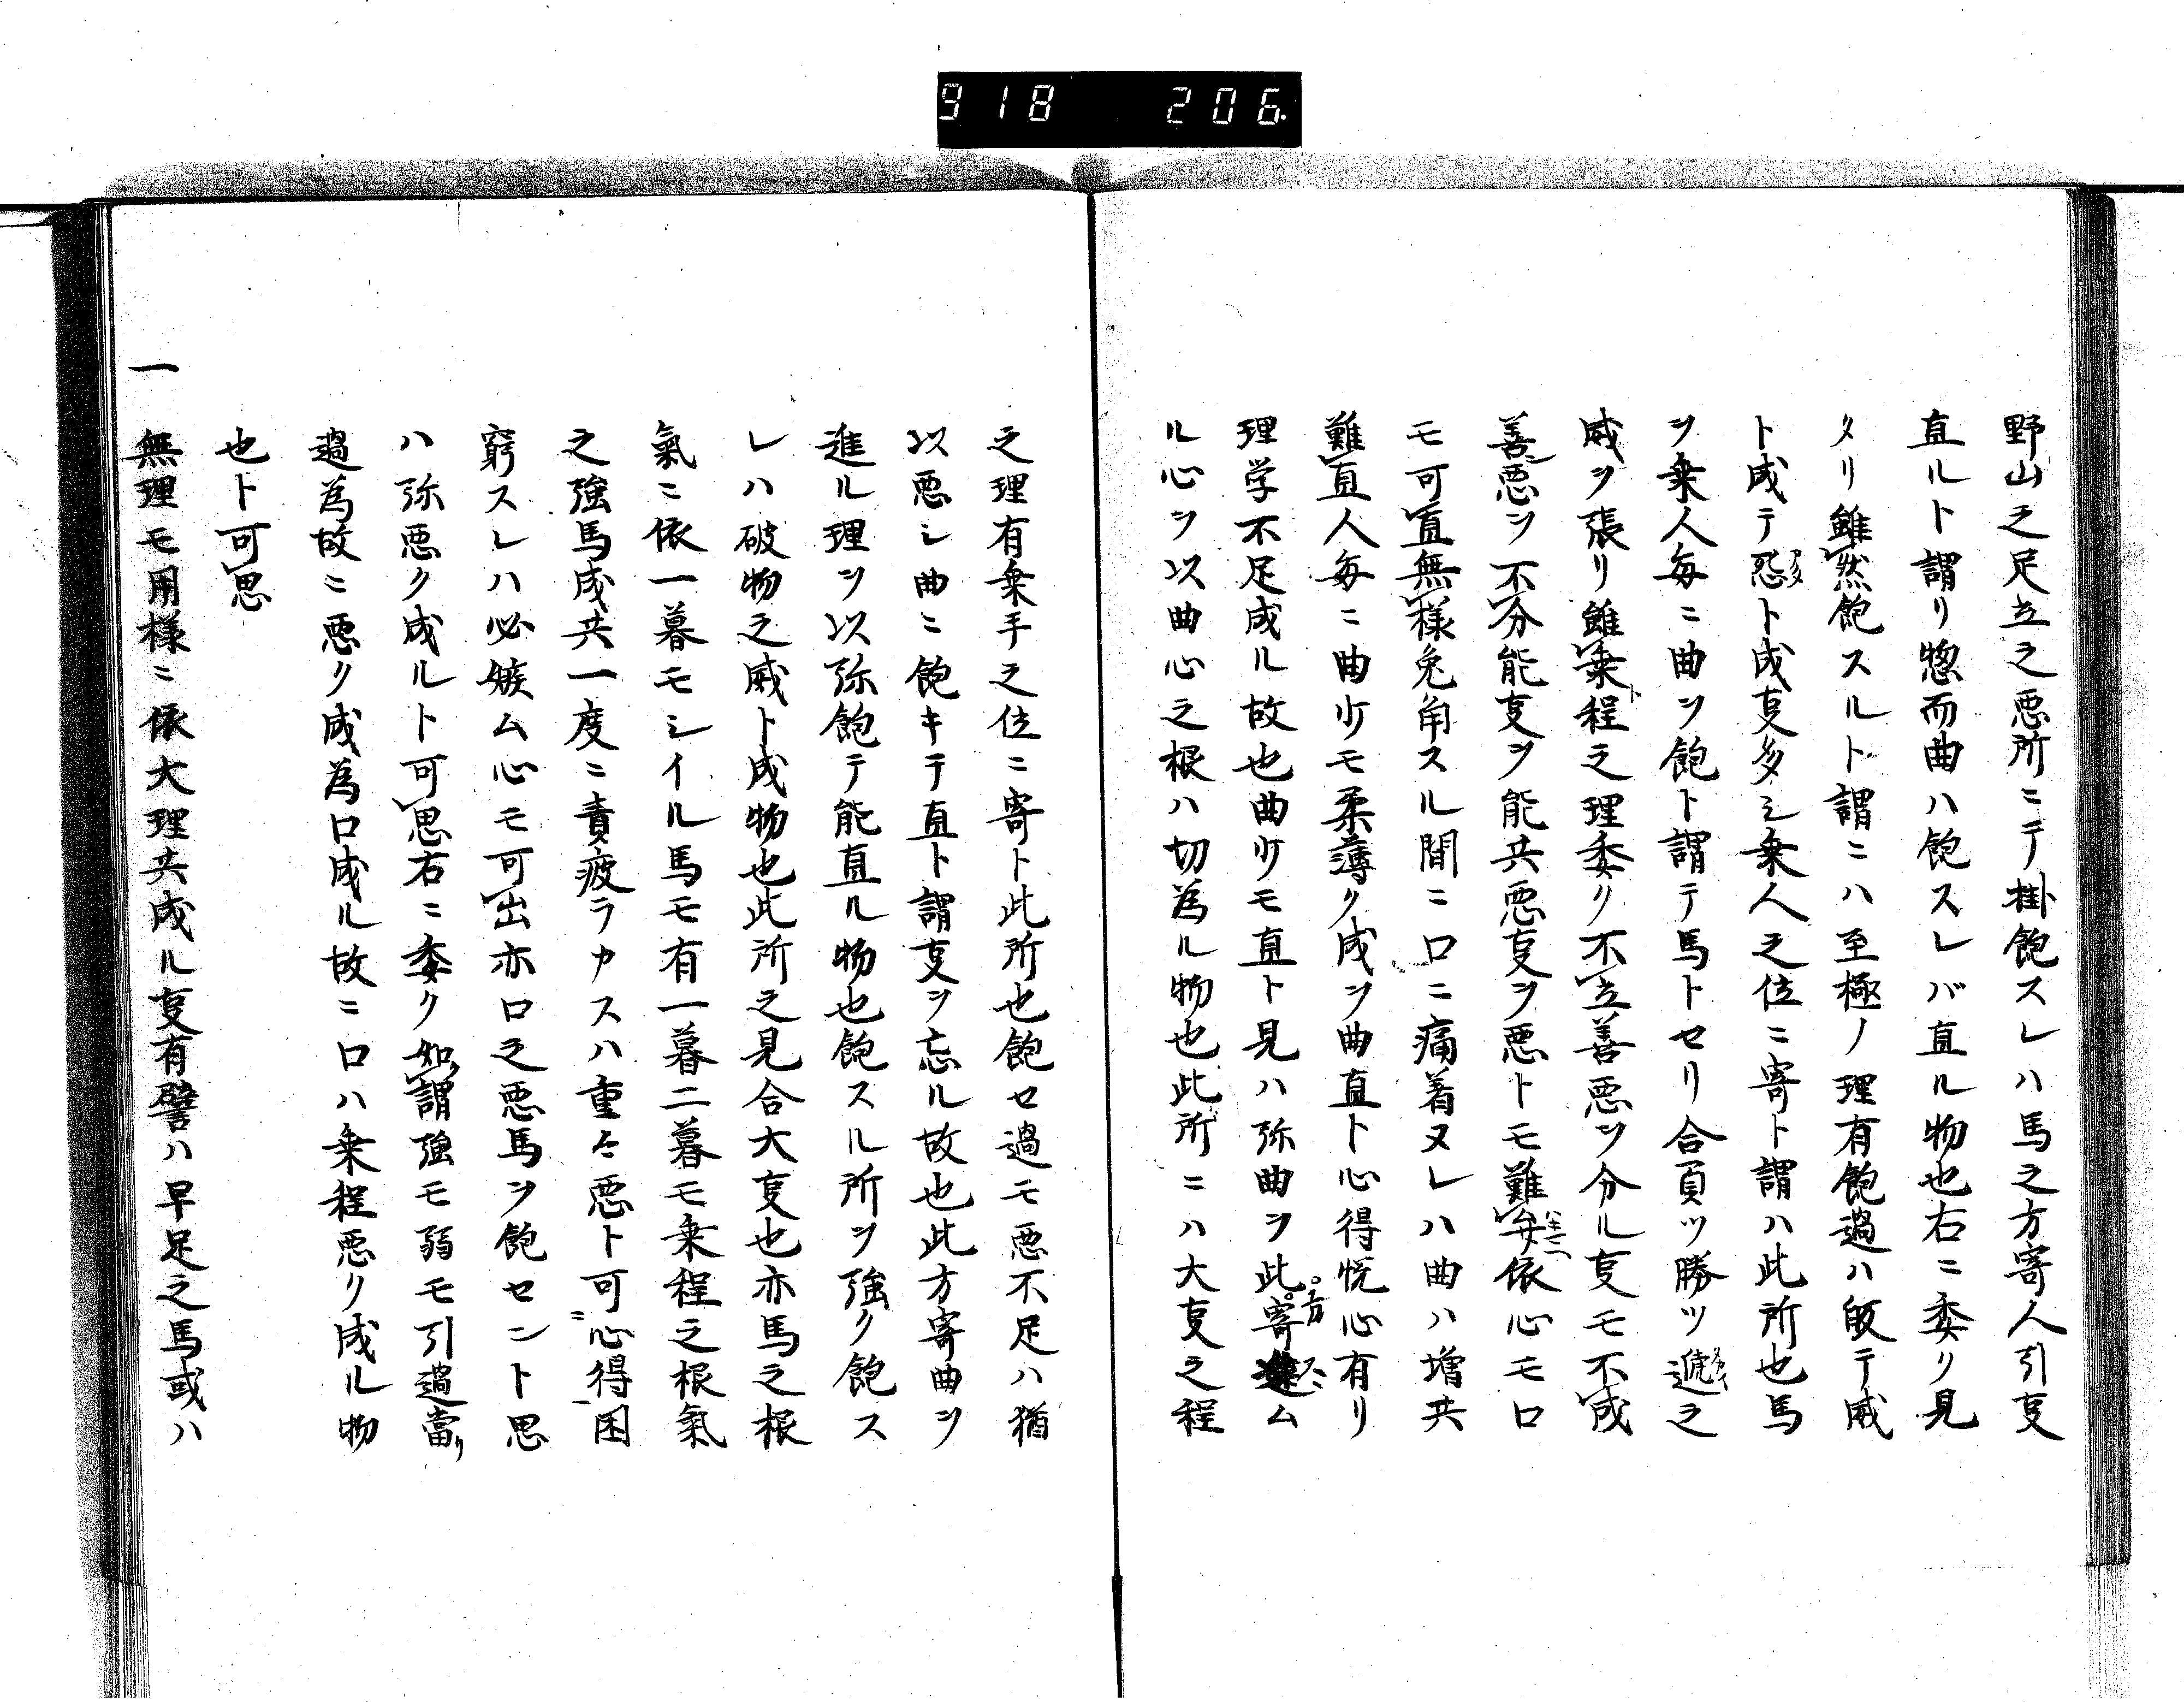 918 206.
野山之足立之悪所ニテ掛飽スレハ馬之方寄人引㕝
直ルト謂リ惣而曲ハ飽スレバ直ル物也右ニ委リ見
タリ雖然飽スルト謂ニハ至極ノ理有飽過ハ皈テ威
ト成テ怨アタト成㕝多シ乗人之位ニ寄ト謂ハ此所也馬
ヲ乗人毎ニ曲ヲ飽ト謂テ馬トセリ合負ツ勝ツ遞之
威ヲ張リ雖乗ト程之理委ク不立善悪ヲ分ル㕝モ不成
善悪ヲ不分能㕝ヲ能共悪㕝ヲ悪トモ難弁依心モロ
モ可直無様兔角スル間ニ口ニ痛着ヌレハ曲ハ増共
難直人毎ニ曲少モ柔薄ク成ヲ曲直ト心得悦心有リ
理学不足成ル故也曲少モ直ト見ハ弥曲ヲ此方寄スニム
ル心ヲ以曲心之根ハ切為ル物也此所ニハ大㕝之程
之理有乗手之位ニ寄ト此所也飽セ過モ悪不足ハ猶
以悪シ曲ニ飽キテ直ト謂㕝ヲ忘ル故也此方寄曲ヲ
進ル理ヲ以弥飽テ能直ル物也飽スル所ヲ強ク飽ス
レハ破物之威ト成物也此所之見合大㕝也亦馬之根
氣ニ依一暮モシイル馬モ有一暮二暮モ乗程之根氣
之強馬成共一度ニ責疲ラカスハ重々悪ト可ニ心得困
窮スレハ必嫉ム心モ可出亦口之悪馬ヲ飽セント思
ハ弥悪ク成ルト可思右ニ委ク如謂強モ弱モ引過當リ
過為故ニ悪ク成為口成ル故ニ口ハ乗程悪リ成ル物
也ト可思
一 無理モ用様ニ依大理共成ル㕝有譬ハ早足之馬或ハ